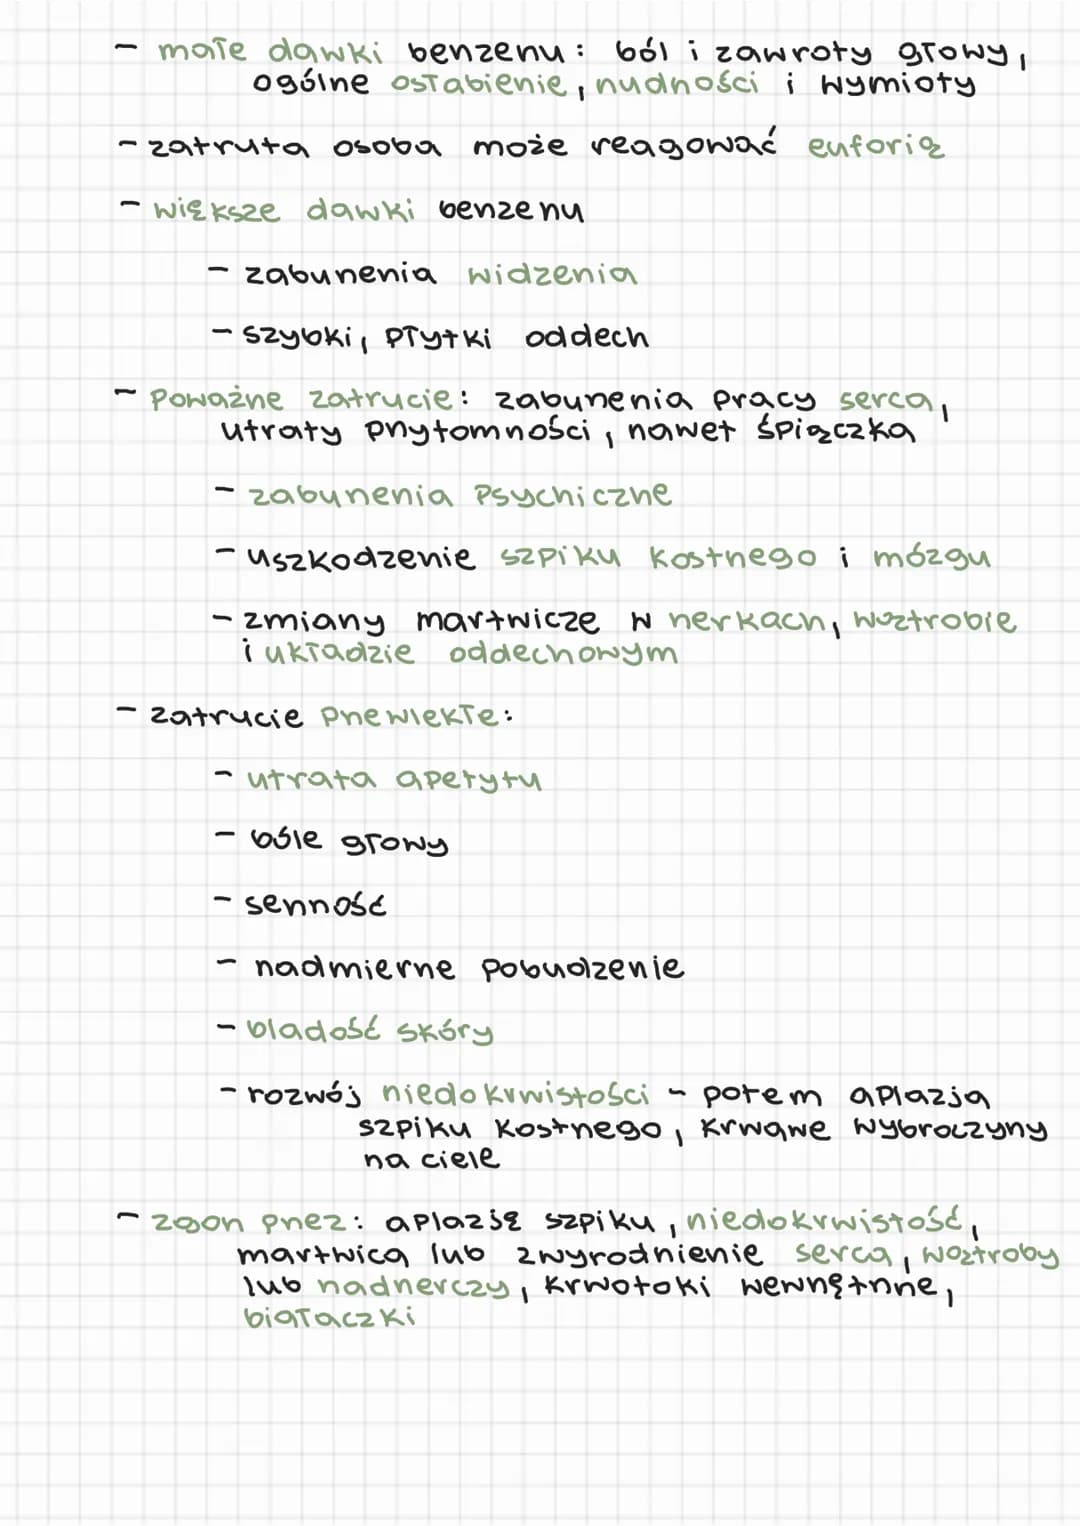 - małe dawki benzenu: ból i zawroty głowy,
ogólne osłabienie, nudności i wymioty
- zatruta osoba może reagować euforią
- większe dawki benzenu
- zaburzenia widzenia
- szybki, płytki oddech
- Poważne zatrucie: zaburzenia pracy serca,
utraty przytomności, nawet śpiączka
- zaburzenia psychiczne
- uszkodzenie szpiku kostnego i mózgu
- zmiany martwicze w nerkach, wątrobie
i układzie oddechowym
- zatrucie przewlekłe:
- utrata apetytu
- bóle głowy
- senność
- nadmierne pobudzenie
- bladość skóry
- rozwój niedokrwistości - potem aplazja
szpiku kostnego, krwawe wybroczyny
na ciele
- zgon przez: aplazję szpiku, niedokrwistość,
martwica lub zwyrodnienie serca, wątroby
lub nadnerczy, krwotoki wewnętrzne,
białaczki